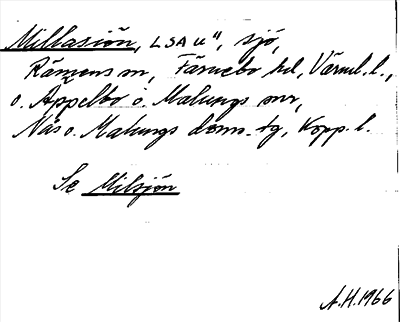 Millasjön, LSA u", sjö,
Rämens sn, Färnebo hd, Värml. l.,
o. Äppelbo o. Malungs snr,
Nås o. Malungs doms. tg, Kopp. l.
Se Milsjön
A.H. 1966